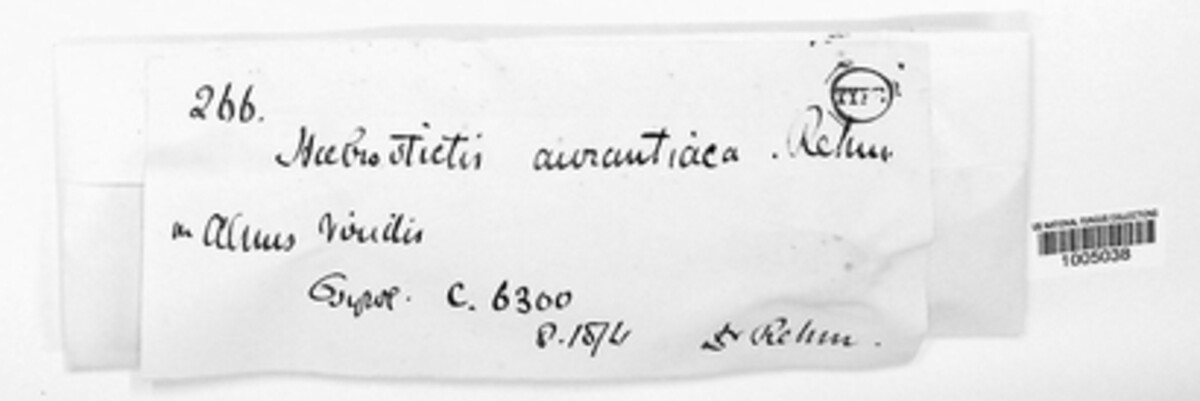 266.
Naevrostictis aurantiaca . Rehm
Alnus viridis
C. 6300
Dr Rehm .
US NATIONAL FUNGUS COLLECTIONS
1005038